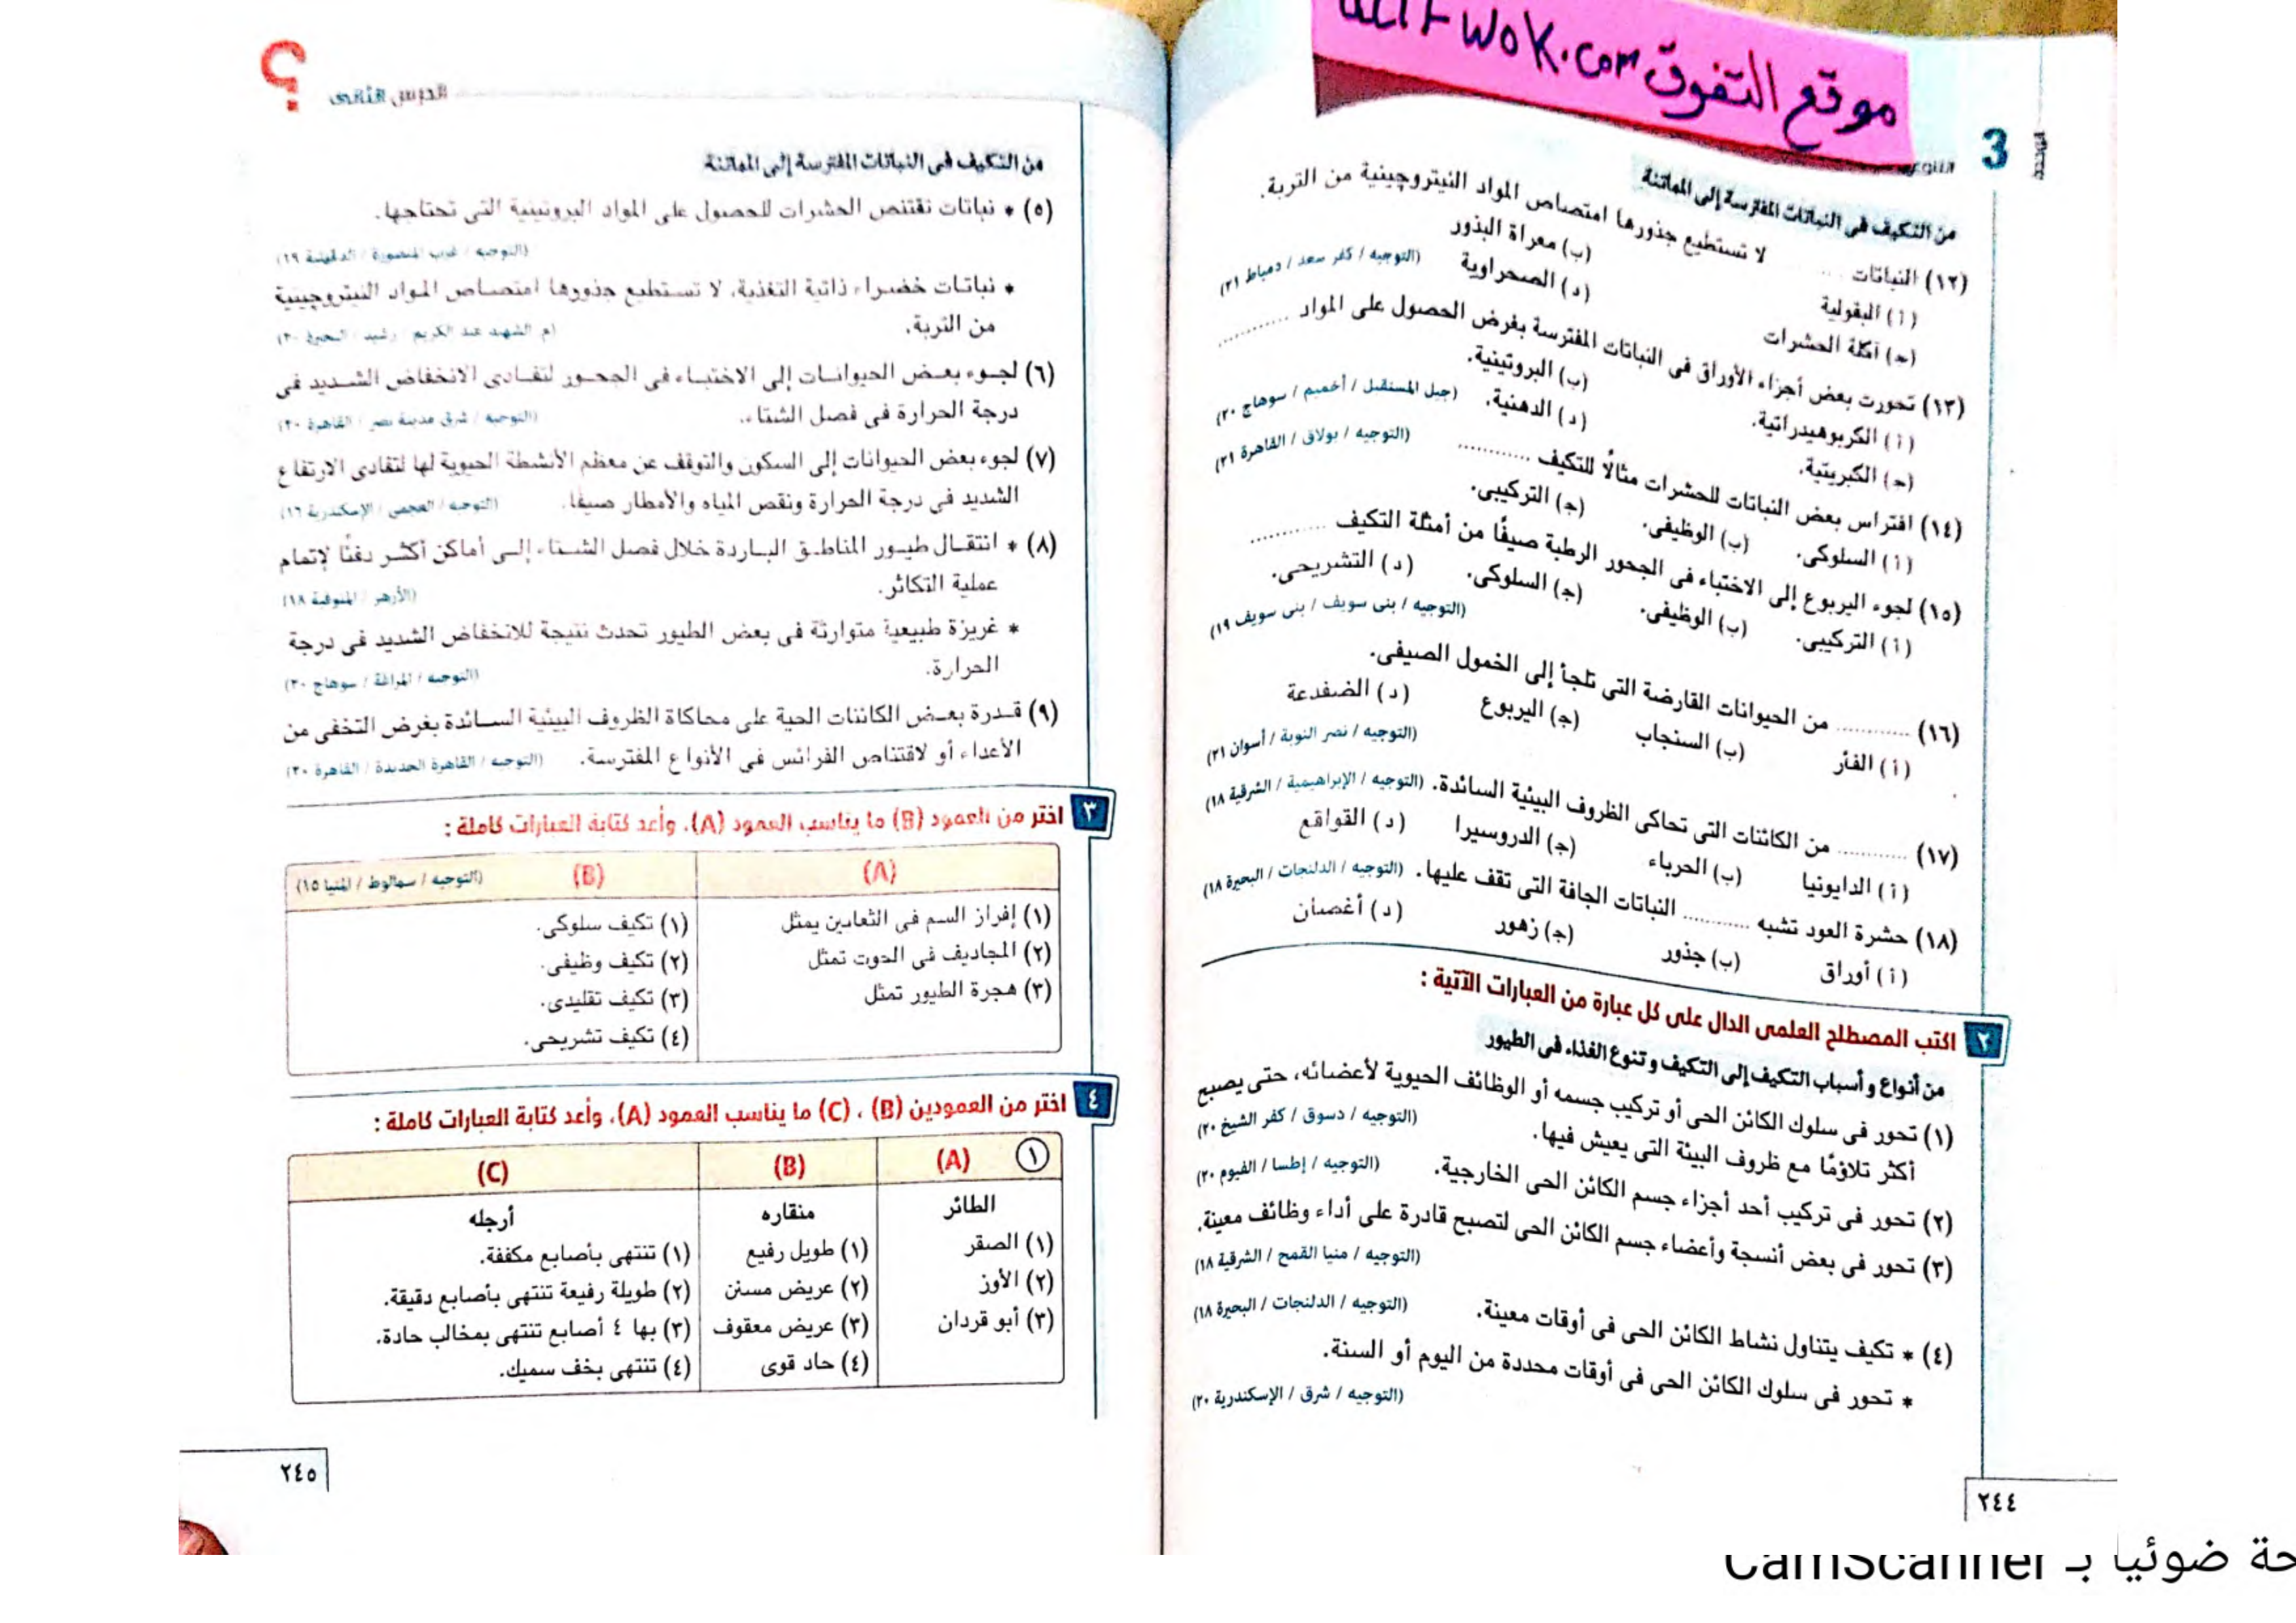 موقع التفوق WOK.com
3
الوحدة
من التكيف فى النباتات المفترسة إلى المماتنة
(١٢) النباتات .......... لا تستطيع جذورها امتصاص المواد النيتروچينية من التربة.
(أ) البقولية
(ب) معراة البذور
(جـ) آكلة الحشرات
(د) الصحراوية
(التوجيه / كفر سعد / دمياط ٢١)
(١٣) تحورت بعض أجزاء الأوراق فى النباتات المفترسة بغرض الحصول على المواد ..........
(أ) الكربوهيدراتية.
(ب) البروتينية.
(جـ) الكبريتية.
(د) الدهنية.
(جيل المستقبل / أخميم / سوهاج ٢٠)
(١٤) افتراس بعض النباتات للحشرات مثالًا للتكيف ..........
(التوجيه / بولاق / القاهرة ٢١)
(أ) السلوكى.
(ب) الوظيفى.
(جـ) التركيبى.
(د) التشريحى.
(١٥) لجوء اليربوع إلى الاختباء فى الجحور الرطبة صيفًا من أمثلة التكيف ..........
(أ) التركيبى.
(ب) الوظيفى.
(جـ) السلوكى.
(التوجيه / بنى سويف / بنى سويف ١٩)
(١٦) .......... من الحيوانات القارضة التى تلجأ إلى الخمول الصيفى.
(أ) الفأر
(ب) السنجاب
(جـ) اليربوع
(د) الضفدعة
(التوجيه / نصر النوبة / أسوان ٢١)
(١٧) .......... من الكائنات التى تحاكى الظروف البيئية السائدة. (التوجيه / الإبراهيمية / الشرقية ١٨)
(أ) الدايونيا
(ب) الحرباء
(جـ) الدروسيرا
(د) القواقع
(١٨) حشرة العود تشبه .......... النباتات الجافة التى تقف عليها. (التوجيه / الدلنجات / البحيرة ١٨)
(أ) أوراق
(ب) جذور
(جـ) زهور
(د) أغصان
٢ اكتب المصطلح العلمى الدال على كل عبارة من العبارات الآتية :
من أنواع وأسباب التكيف إلى التكيف وتنوع الغذاء فى الطيور
(١) تحور فى سلوك الكائن الحى أو تركيب جسمه أو الوظائف الحيوية لأعضائه، حتى يصبح
أكثر تلاؤمًا مع ظروف البيئة التى يعيش فيها.
(التوجيه / دسوق / كفر الشيخ ٢٠)
(٢) تحور فى تركيب أحد أجزاء جسم الكائن الحى الخارجية.
(التوجيه / إطسا / الفيوم ٢٠)
(٣) تحور فى بعض أنسجة وأعضاء جسم الكائن الحى لتصبح قادرة على أداء وظائف معينة.
(التوجيه / منيا القمح / الشرقية ١٨)
(٤) * تكيف يتناول نشاط الكائن الحى فى أوقات معينة.
(التوجيه / الدلنجات / البحيرة ١٨)
* تحور فى سلوك الكائن الحى فى أوقات محددة من اليوم أو السنة.
(التوجيه / شرق / الإسكندرية ٢٠)
٢٤٤
الدرس الثانى
؟
من التكيف فى النباتات المفترسة إلى المماتنة
(٥) * نباتات تقتنص الحشرات للحصول على المواد البروتينية التى تحتاجها.
(التوجيه / غرب المنصورة / الدقهلية ١٩)
* نباتات خضراء ذاتية التغذية، لا تستطيع جذورها امتصاص المواد النيتروچينية
من التربة.
(م الشهيد عبد الكريم / رشيد / البحيرة ٢٠)
(٦) لجوء بعض الحيوانات إلى الاختباء فى الجحور لتفادى الانخفاض الشديد فى
درجة الحرارة فى فصل الشتاء.
(التوجيه / شرق مدينة نصر / القاهرة ٢٠)
(٧) لجوء بعض الحيوانات إلى السكون والتوقف عن معظم الأنشطة الحيوية لها لتفادى الارتفاع
الشديد فى درجة الحرارة ونقص المياه والأمطار صيفًا.
(التوجيه / العجمى / الإسكندرية ١٦)
(٨) * انتقال طيور المناطق الباردة خلال فصل الشتاء إلى أماكن أكثر دفئًا لإتمام
عملية التكاثر.
(الأزهر / المنوفية ١٨)
* غريزة طبيعية متوارثة فى بعض الطيور تحدث نتيجة للانخفاض الشديد فى درجة
الحرارة.
(التوجيه / المراغة / سوهاج ٢٠)
(٩) قدرة بعض الكائنات الحية على محاكاة الظروف البيئية السائدة بغرض التخفى من
الأعداء أو لاقتناص الفرائس فى الأنواع المفترسة.
(التوجيه / القاهرة الجديدة / القاهرة ٢٠)
٣ اختر من العمود (B) ما يناسب العمود (A)، وأعد كتابة العبارات كاملة :
(A)
(B)
(التوجيه / سمالوط / المنيا ١٥)
(١) إفراز السم فى الثعابين يمثل
(١) تكيف سلوكى.
(٢) المجاديف فى الحوت تمثل
(٢) تكيف وظيفى.
(٣) هجرة الطيور تمثل
(٣) تكيف تقليدى.
(٤) تكيف تشريحى.
٤ اختر من العمودين (B) ، (C) ما يناسب العمود (A)، وأعد كتابة العبارات كاملة :
١ (A)
(B)
(C)
الطائر
منقاره
أرجله
(١) الصقر
(١) طويل رفيع
(١) تنتهى بأصابع مكففة.
(٢) الأوز
(٢) عريض مسنن
(٢) طويلة رفيعة تنتهى بأصابع دقيقة.
(٣) أبو قردان
(٣) عريض معقوف
(٣) بها ٤ أصابع تنتهى بمخالب حادة.
(٤) حاد قوى
(٤) تنتهى بخف سميك.
٢٤٥
ضوئيا بـ CamScanner